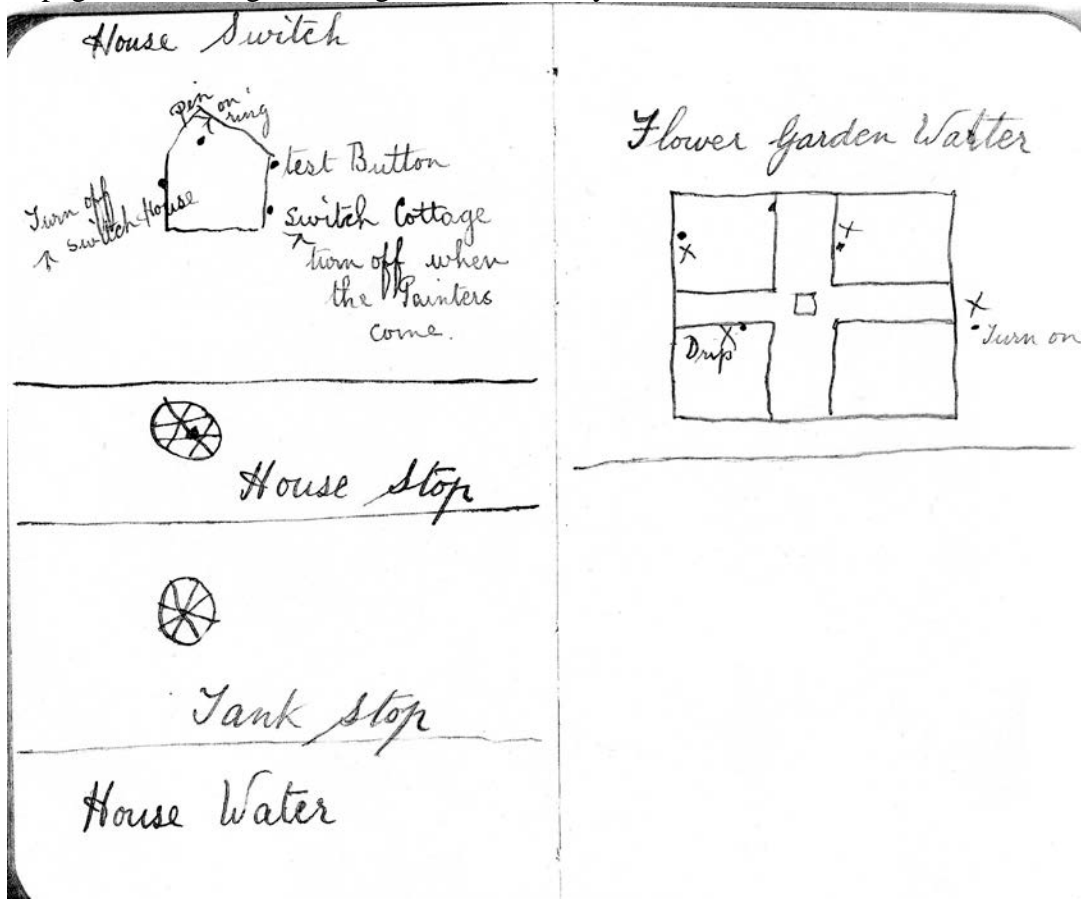 House Switch
pin on'
ring
test Button
Turn off
switch House
switch Cottage
turn off when
the Painters
come.
House Stop
Tank Stop
House Water
Flower Garden Watter
X
X
X
Turn on
X
Drip